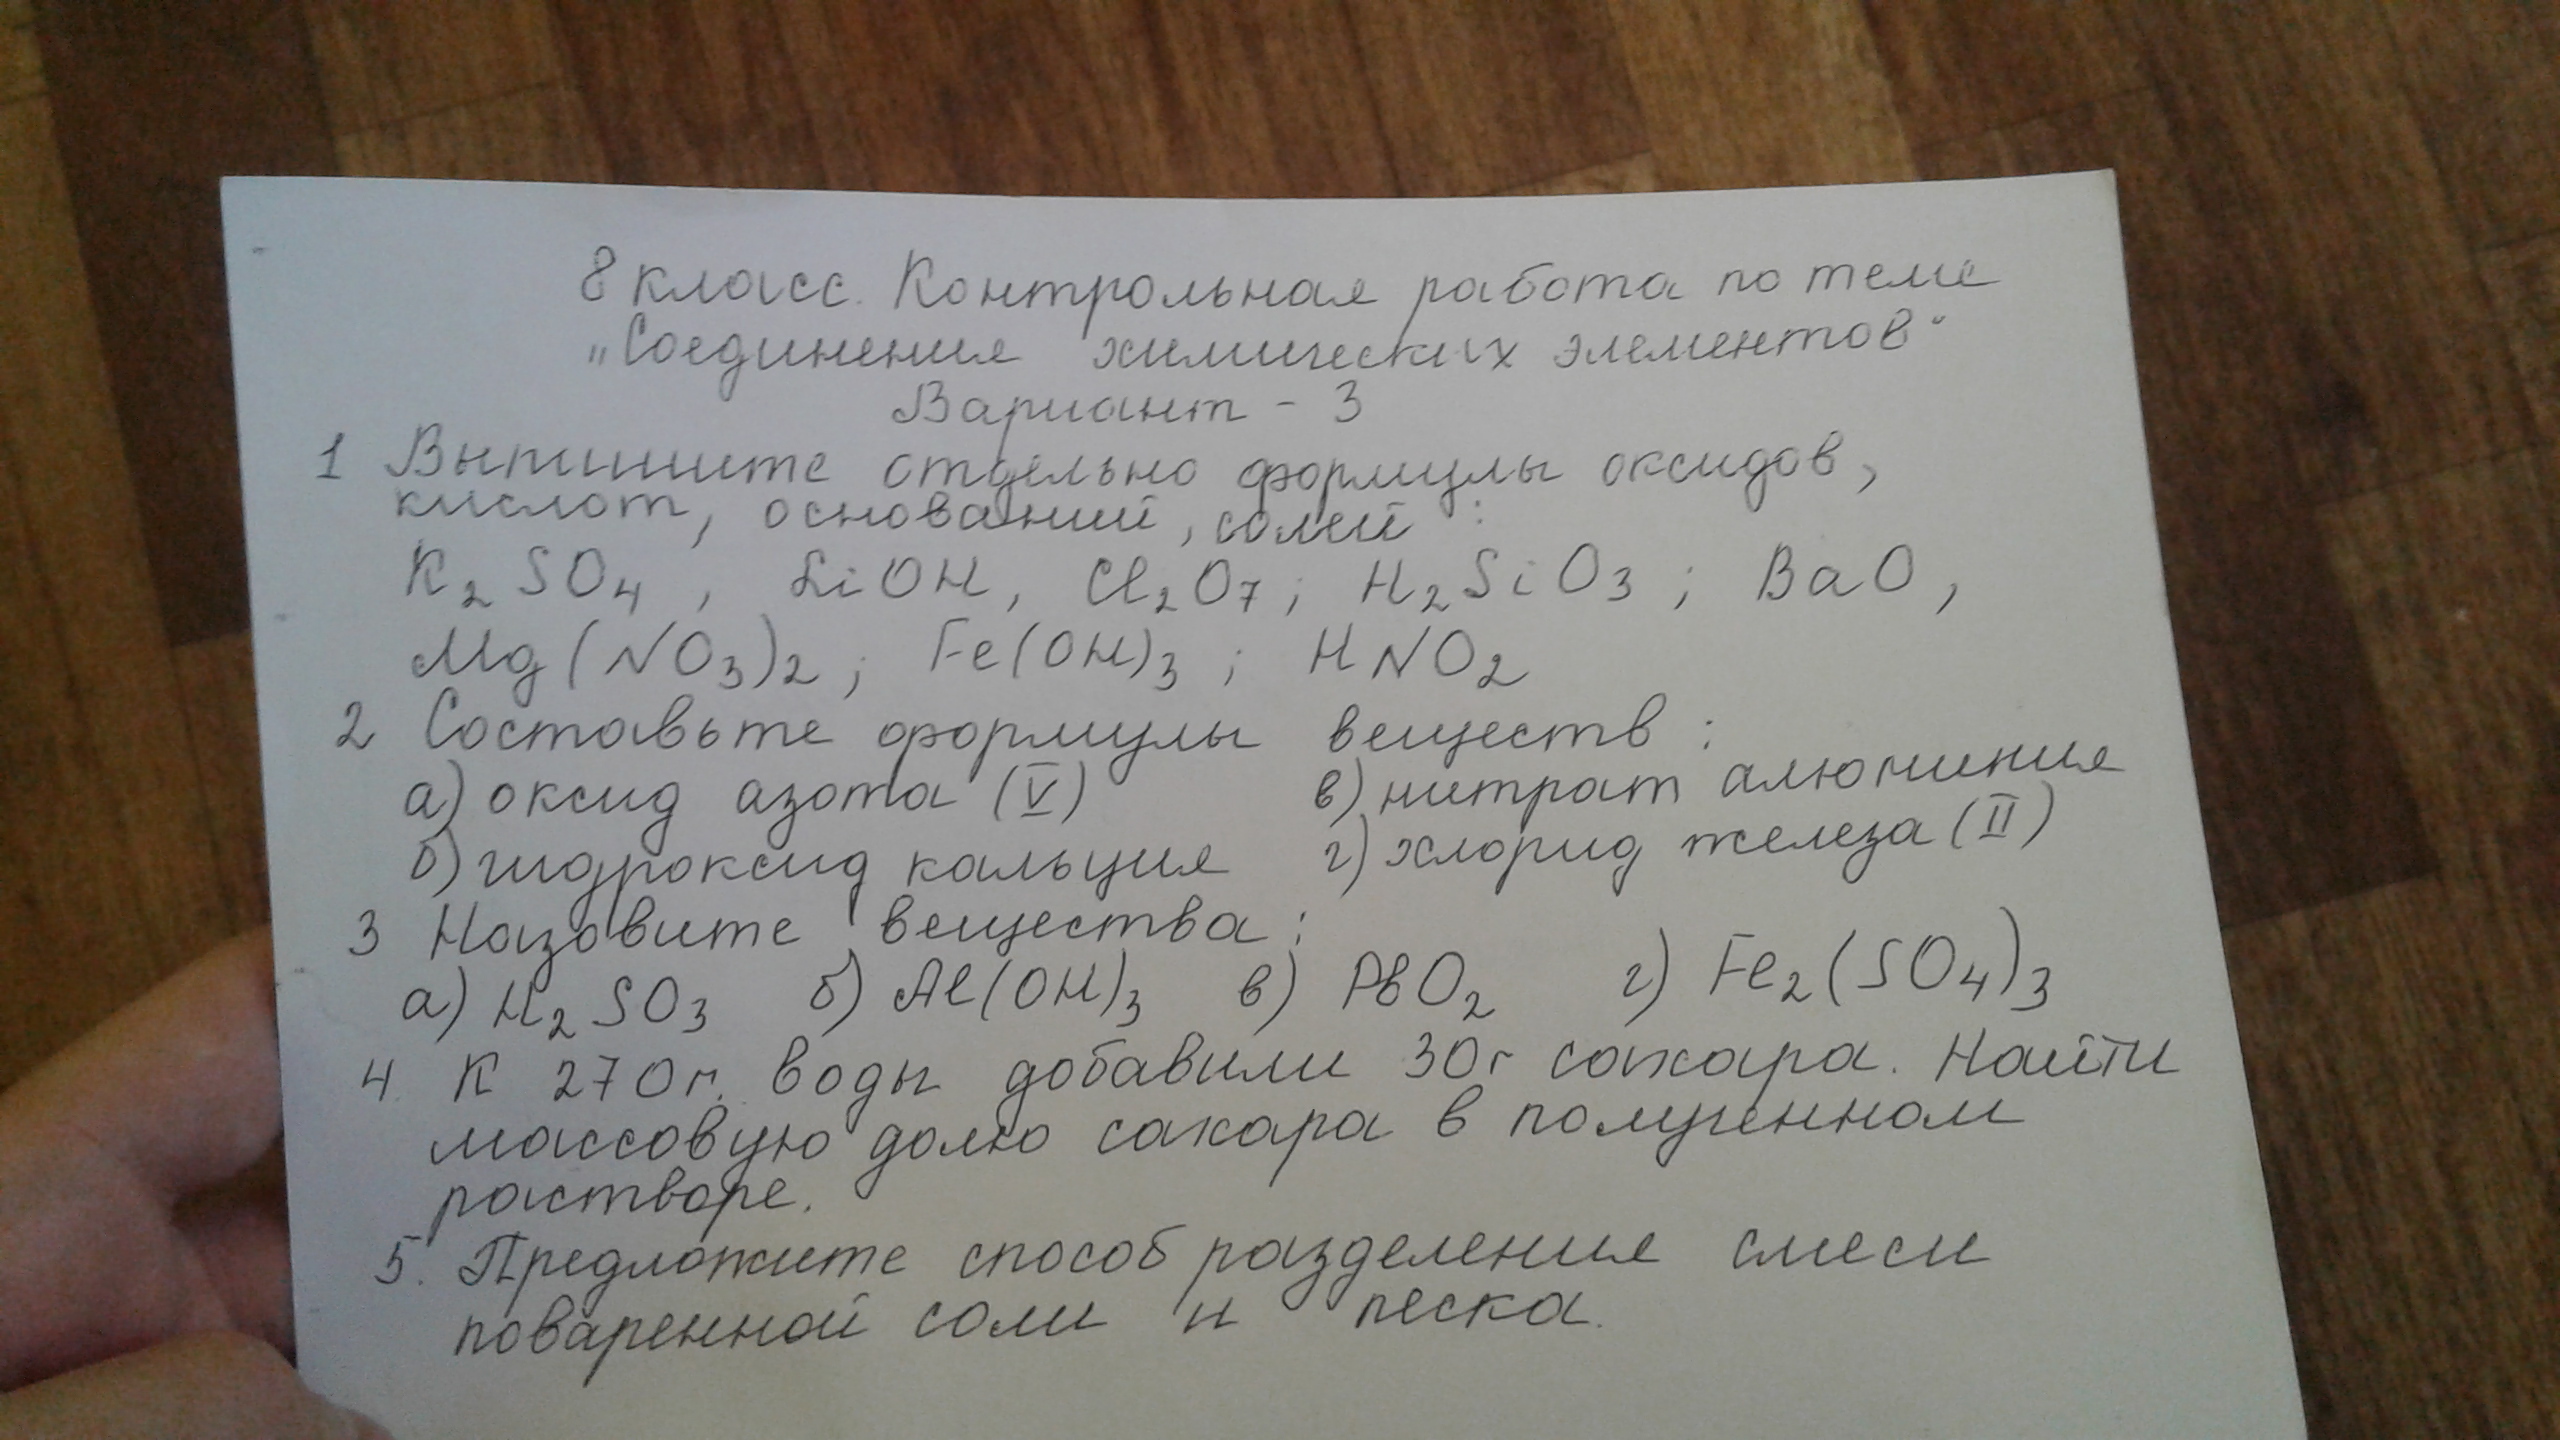 8 класс. Контрольная работа по теме
„Соединения химических элементов"
Вариант - 3
1 Выпишите отдельно формулы оксидов,
кислот, оснований, солей:
K₂SO₄, LiOH, Cl₂O₇; H₂SiO₃; BaO,
Mg(NO₃)₂; Fe(OH)₃; HNO₂
2 Составьте формулы веществ:
а) оксид азота (V) в) нитрат алюминия
б) гидроксид кальция г) хлорид железа (II)
3 Назовите вещества:
а) H₂SO₃ б) Al(OH)₃ в) PbO₂ г) Fe₂(SO₄)₃
4. К 270г. воды добавили 30г сахара. Найти
массовую долю сахара в полученном
растворе.
5. Предложите способ разделения смеси
поваренной соли и песка.